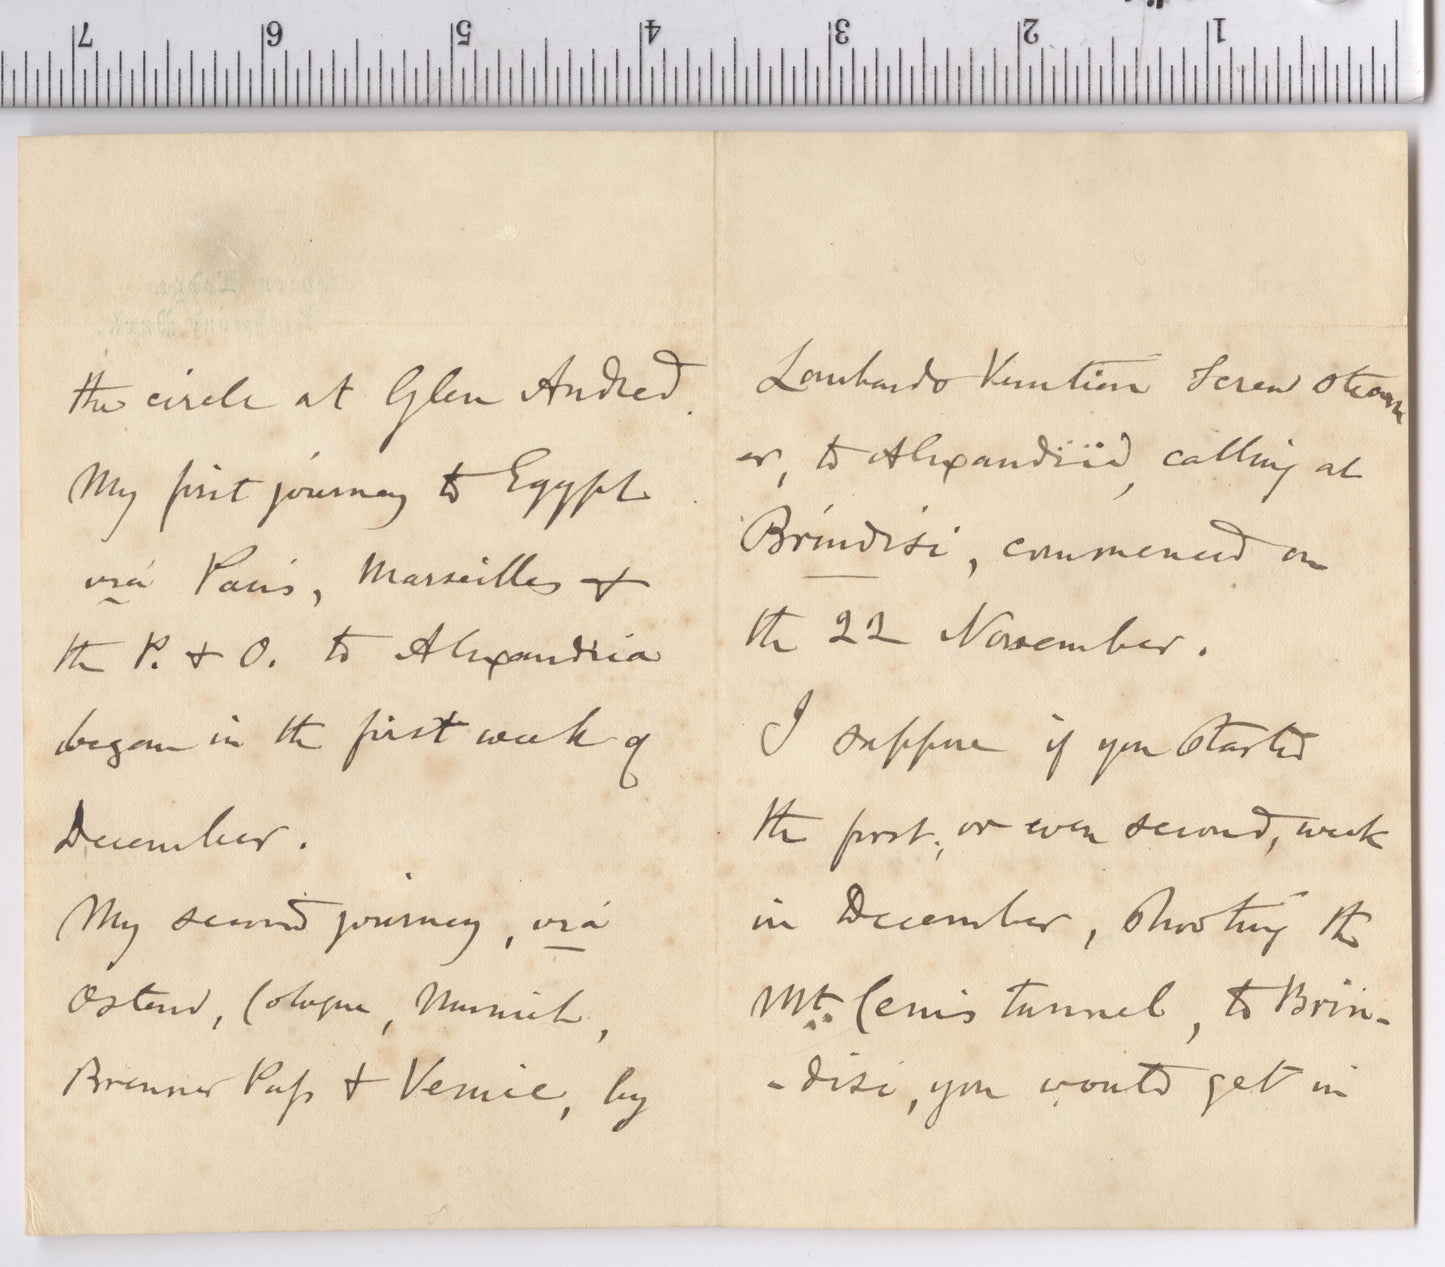 7 6 5 4 3 2 1
the circle at Glen Andred.
My first journey to Egypt
viâ Paris, Marseilles &
the P. & O. to Alexandria
began in the first week of
December.
My second journey, viâ
Ostend, Cologne, Munich,
Brenner Pass & Venice, by
Lombardo Venetian Screw Steam
er, to Alexandria, calling at
Brindisi, commenced on
the 22 November.
I suppose if you started
the first, or even second, week
in December, shooting the
Mt. Cenis tunnel, to Brin-
-disi, you would get in